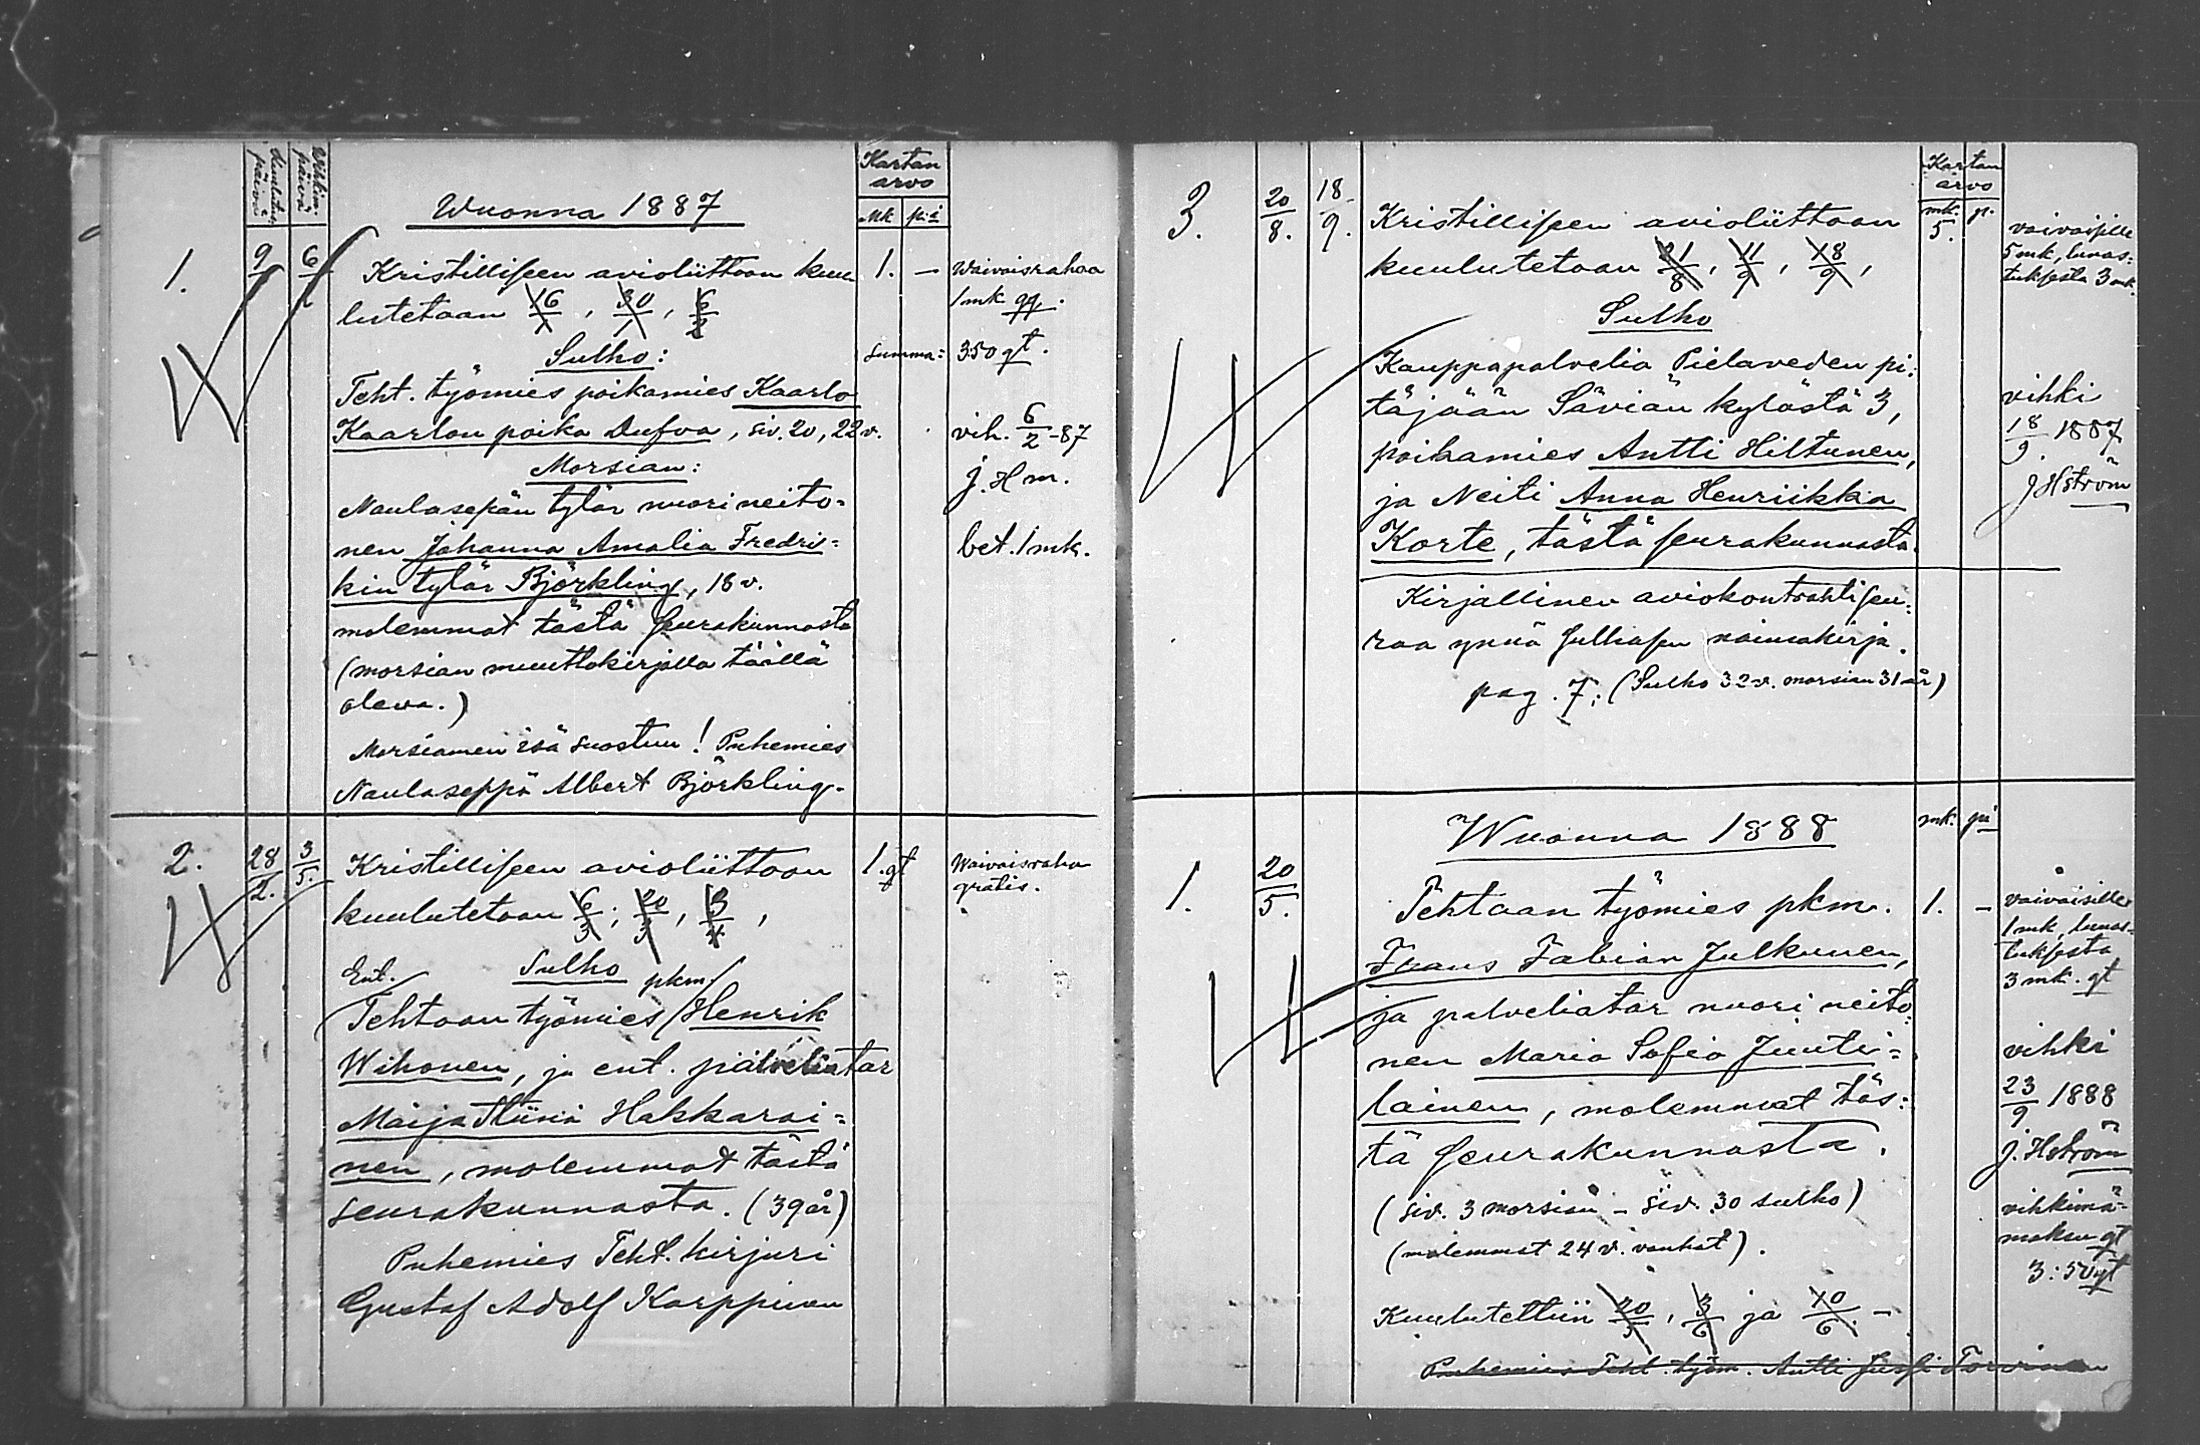 Kuulutus päivä
Vihkim. päivä
Kartan arvo
Mk
pi:ä
Wuonna 1887
1.
9
6
Kristilliseen avioliittoon kuu
lutetaan 16/1, 30/1, 6/2
Sulho:
Teht. työmies poikamies Kaarlo
Kaarlon poika Dufva, siv. 20, 22 v.
Morsian:
Naulasepän tytär nuori neito=
nen Johanna Amalia Fredri=
kin tytär Björkling, 18 v.
molemmat tästä seurakunnasta
(morsian muuttokirjalla täällä
oleva.)
Morsiamen isä suostuu! Puhemies
Naulaseppä Albert Björkling.
1. —
Waivaisrahaa
1 mk gg.
Summa= 350 gt.
vih. 6/2 -87
J. H m.
bet. 1 mk.
2.
28/2.
3/5.
Kristilliseen avioliittoon
kuulutetaan 6/3; 20/3, 3/4,
Ent. Sulho pkm/
Tehtaan työmies / Henrik
Wihonen, ja ent. palveliatar
Maija Stiina Hakkarai=
nen, molemmat tästä
seurakunnasta. (39 år)
Puhemies Teht. kirjuri
Gustaf Adolf Karppinen
1. gt
Waivaisraha
gratis.
Kartan arvo
mk. p.
3.
20/8.
18/9.
Kristilliseen avioliittoon
kuulutetaan 21/8, 11/9, 18/9,
Sulho
Kauppapalvelia Pielaveden pi:
täjään Säviän kylästä 3,
poikamies Antti Hiltunen,
ja Neiti Anna Henriikka
Korte, tästä seurakunnasta.
Kirjallinen aviokontrahti seu:
raa ynnä sulhasen naimakirja.
pag. 7: (Sulho 32 v. morsian 31 år)
5.
vaivaisille
5 mk, lunas=
tuksesta 3 mk.
vihki
18/9. 1887
J Hström
Wuonna 1888
mk. pi
1.
20/5.
Tehtaan työmies pkm.
Frans Fabian Julkunen,
ja palveliatar nuori neito:
nen Maria Sofia Juuti=
lainen, molemmat täs:
tä seurakunnasta.
(siv. 3 morsian – siv. 30 sulho)
(molemmat 24 v. vanhat).
Kuulutettiin 20/5, 3/6 ja 10/6. –
Puhemies Teht. työm. Antti Jussi Torvinen
1. –
vaivaisille
1 mk, lunas=
tuksesta
3 mk. gt
vihki
23/9 1888
J. Hström
vihkimä=
maksu gt
3:50 gt